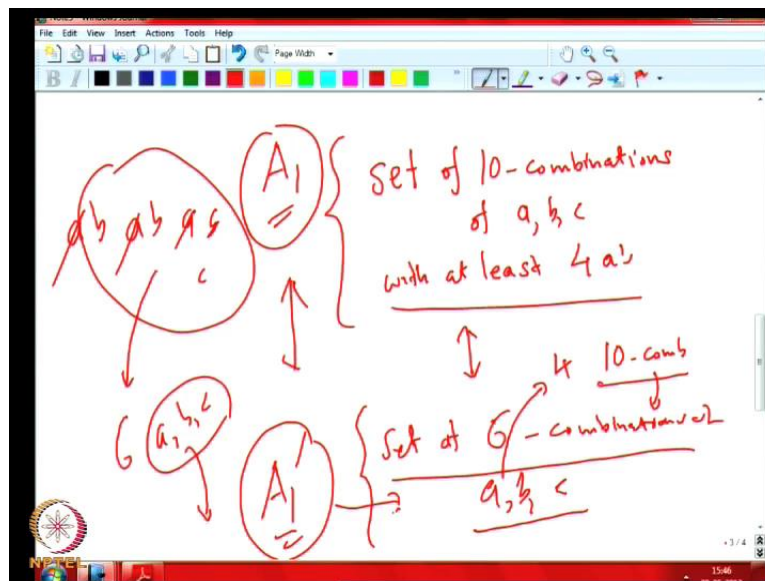 File Edit View Insert Actions Tools Help
Page Width
B I
A1
set of 10-combinations
of a, b, c
with at least 4 a's
ab ab a
c
4 10-comb
6 a, b, c
set of 6-combination
A1'
a, b, c
3/4
15:46
NPTEL